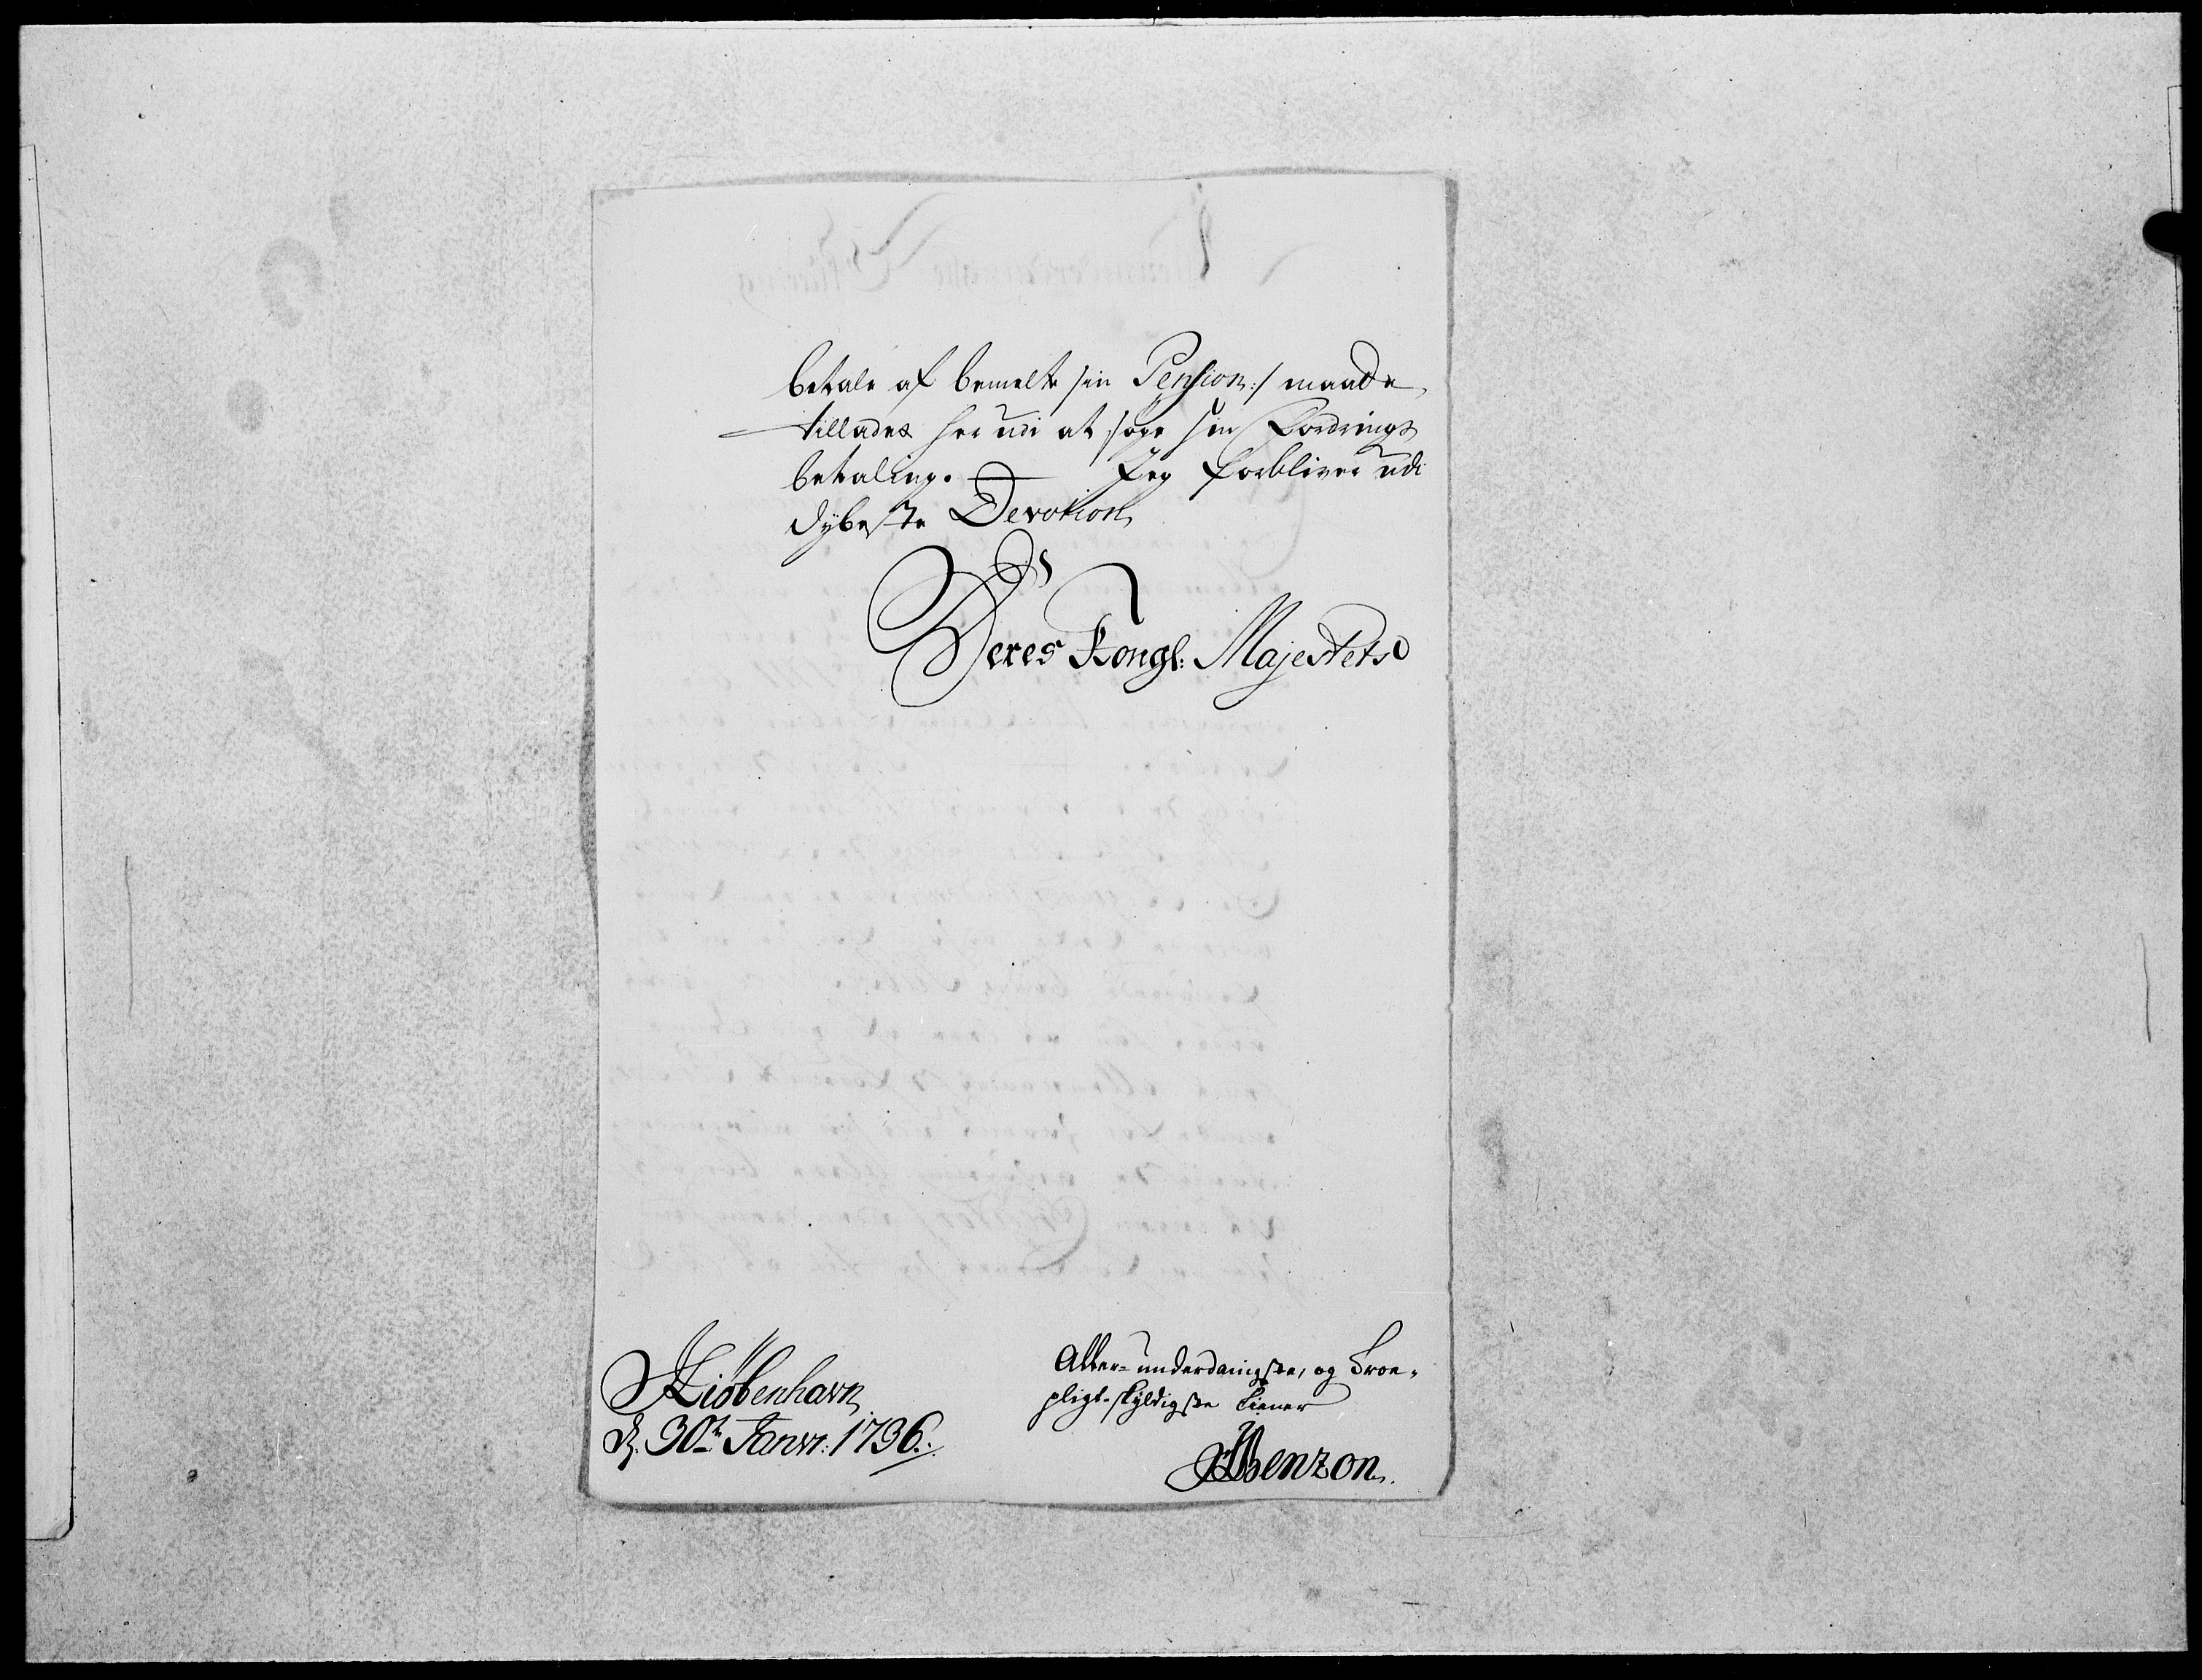 betale af bemelte sin Pension :/ maatte
tillades her udi at søge sin Fordrings
betaling. Jeg forbliver udi
dybeste Devotion
Deres Kongl: Majestets
Kiøbenhavn
d. 30te Janvr: 1736.
Aller-underdanigste, og Troe-
pligt-skyldigste Tiener
Benzon.